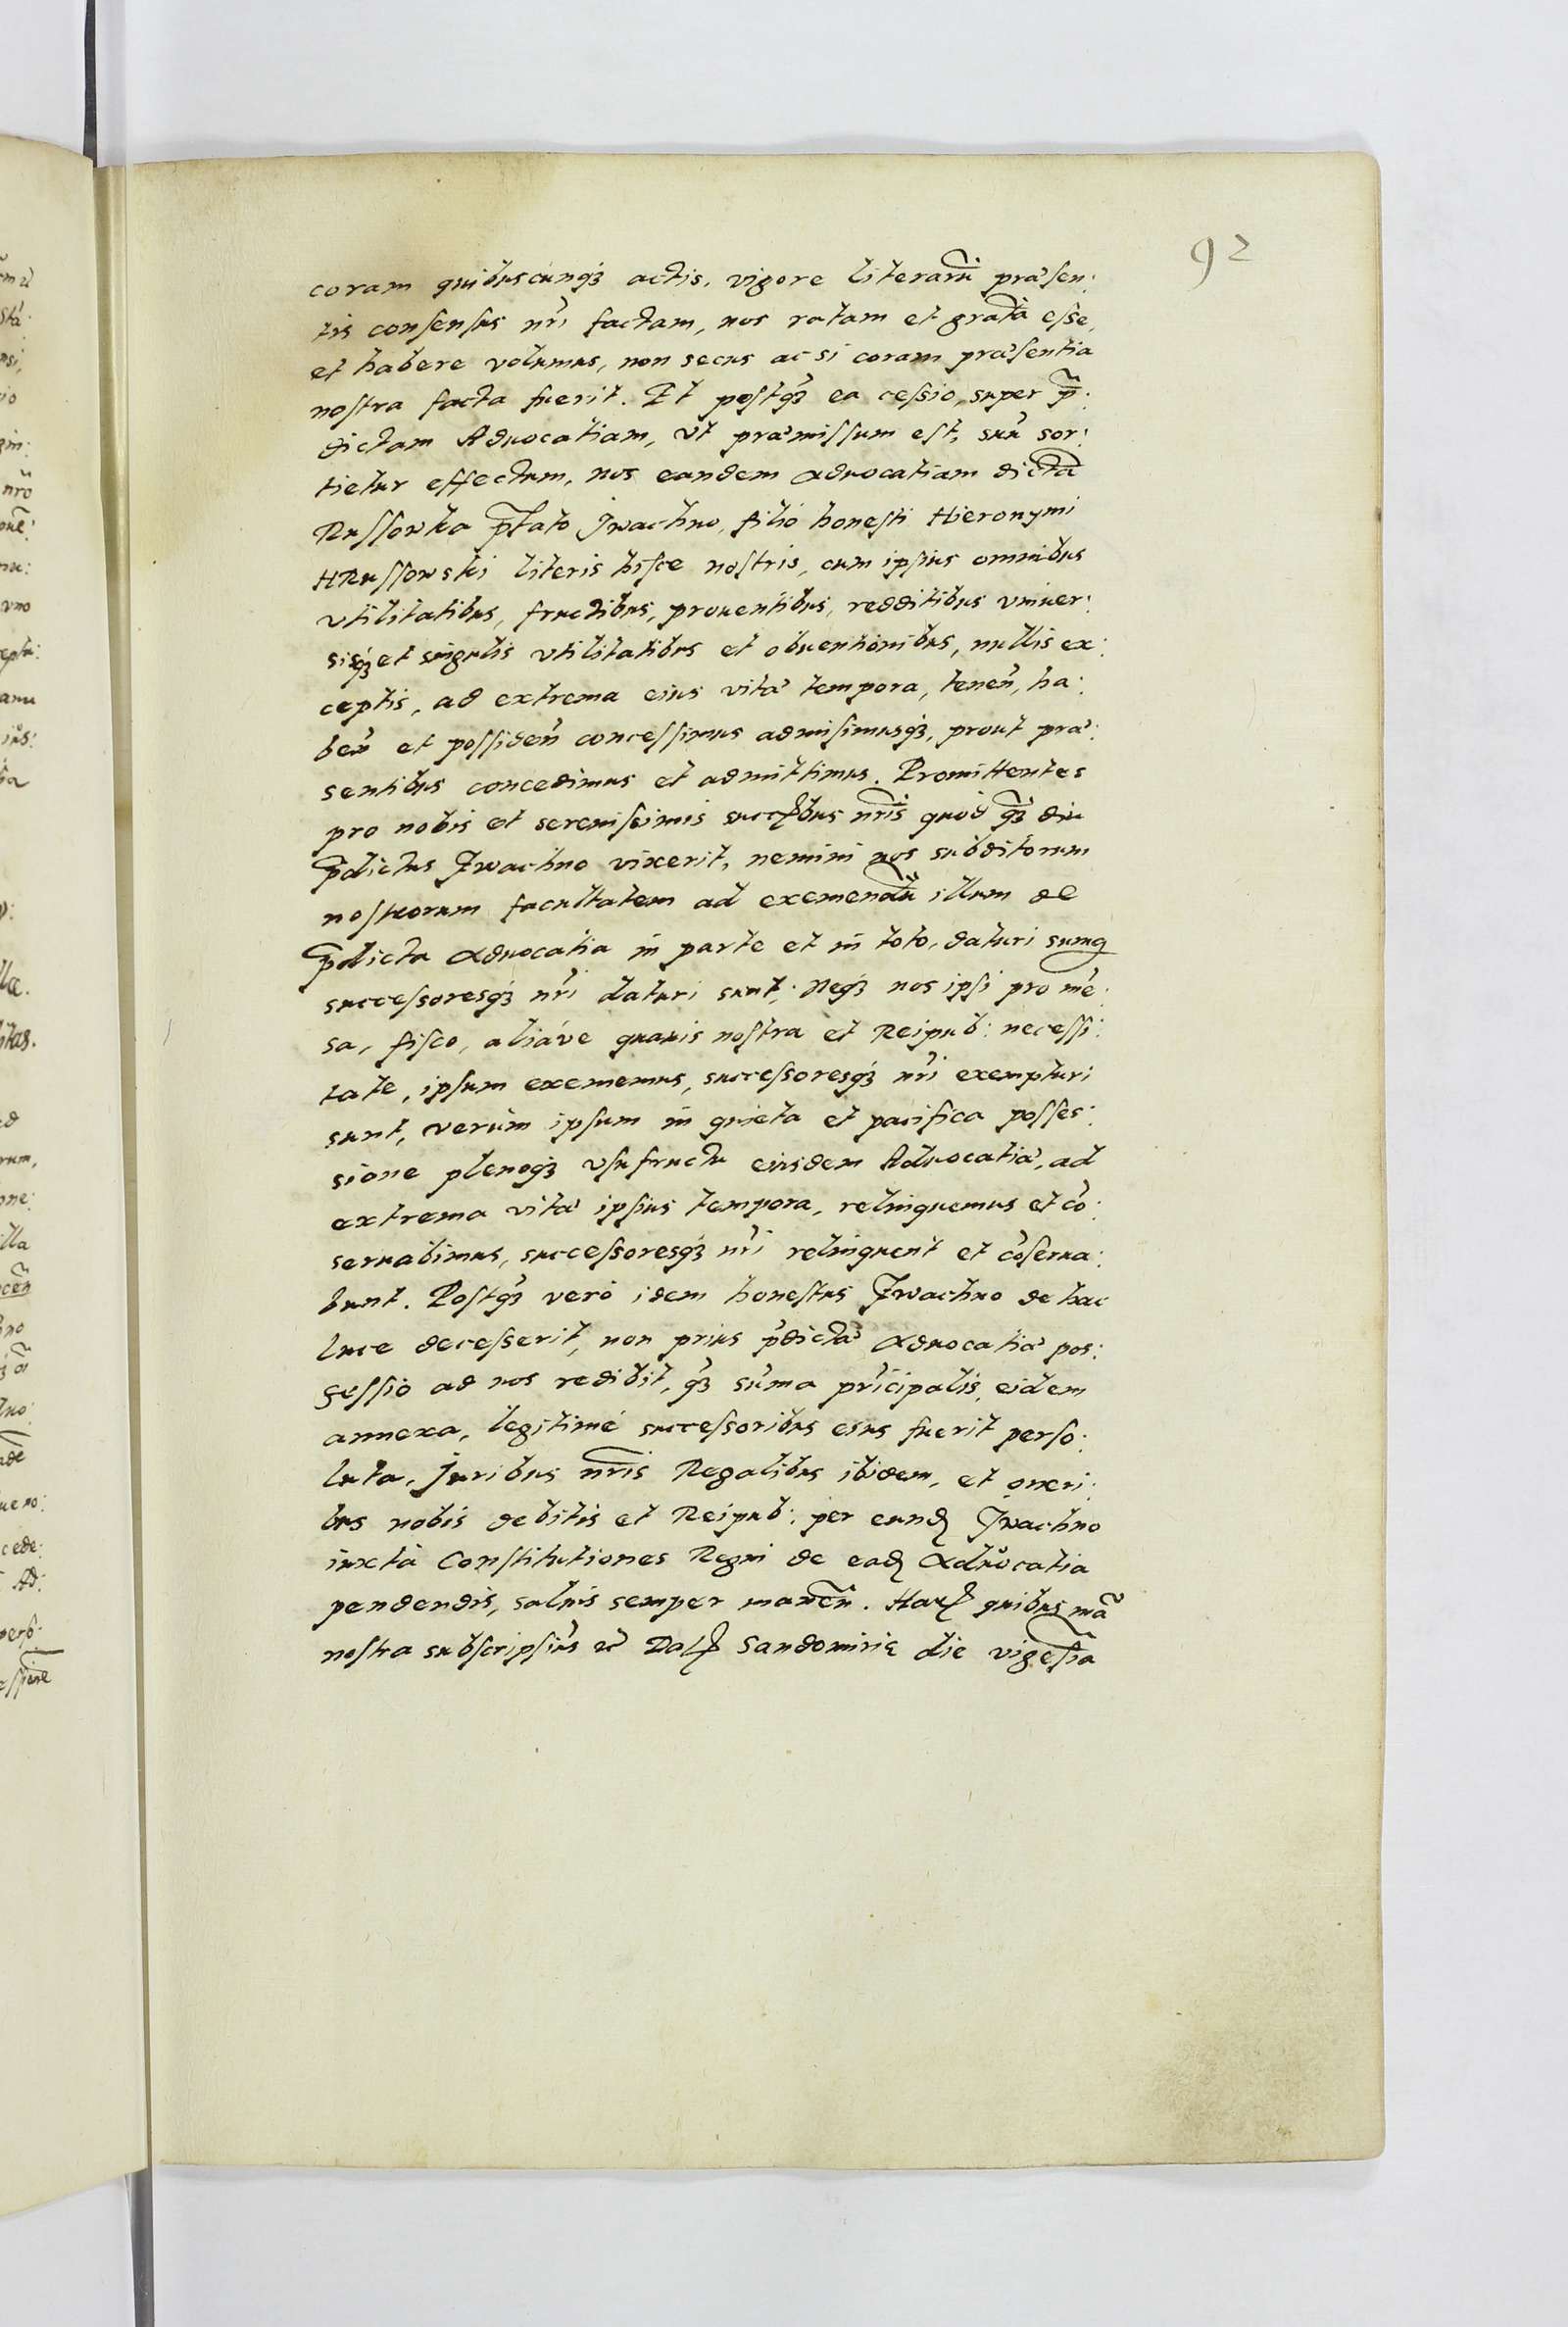 92
coram quibuscunqȝ actis, vigore literarũ præsen:
tis consensus nr̃i factam, nos ratam et gratã esse,
et habere volumus, non secus ac si coram præsentia
nostra facta fuerit. Et postqȝ̃ ea cessio, super p̃:
dictam Aduocatiam, vt præmissum est, suũ sor:
tietur effectum, nos eandem aduocatiam dictã
Russowka p̃fato Jwachno, filio honesti Hieronymi
HRussowski literis hisce nostris, cum ipsius omnibus
vtilitatibus, fructibus, prouentibus, redditibus vniuer:
sisqȝ et singulis vtilitatibus et obuentionibus, nullis ex:
ceptis, ad extrema eius vitæ tempora, teneñ, ha:
beñ et possideñ concessimus admisimusqȝ, prout præ:
sentibus concedimus et admittimus. Promittentes
pro nobis et serenissimis succ̃bus nr̃is quod qȝ̃ diu
p̃dictus Jwachno vixerit, nemini nos subditorum
nostrorum facultatem ad exemendũ illum de
p̃dicta aduocatia in parte et in toto, daturi sumq
successoresqȝ nr̃i daturi sunt. Neqȝ nos ipsi pro mẽ:
sa, fisco, aliáve quauis nostra et Reipub: necessi:
tate, ipsum exememus, successoresqȝ nr̃i exempturi
sunt, verùm ipsum in quieta et pacifica posses:
sione plenoqȝ vsufructu eiusdem Aduocatiæ, ad
extrema vitæ ipsius tempora, relinquemus et cõ:
seruabimus, successoresqȝ nr̃i relinquent et cõserua:
bunt. Postqȝ̃ verò idem honestus Jwachno de hac
luce decesserit, non prius p̃dictæ aduocatiæ pos:
sessio ad nos redibit, qȝ̃ sũma prĩcipalis, eidem
annexa, legitimé successoribus eius fuerit perso:
luta, Juribus nr̃is Regalibus ibidem, et oneri:
bus nobis debitis et Reipub: per eundꝫ Jwachno
iuxta Constitutiones Regni de eadꝫ aduocatia
pendendis, saluis semper maneñ. Harꝫ quibus mã
nostra subscripsim̃ et Datꝫ Sandomirię die vigesĩa